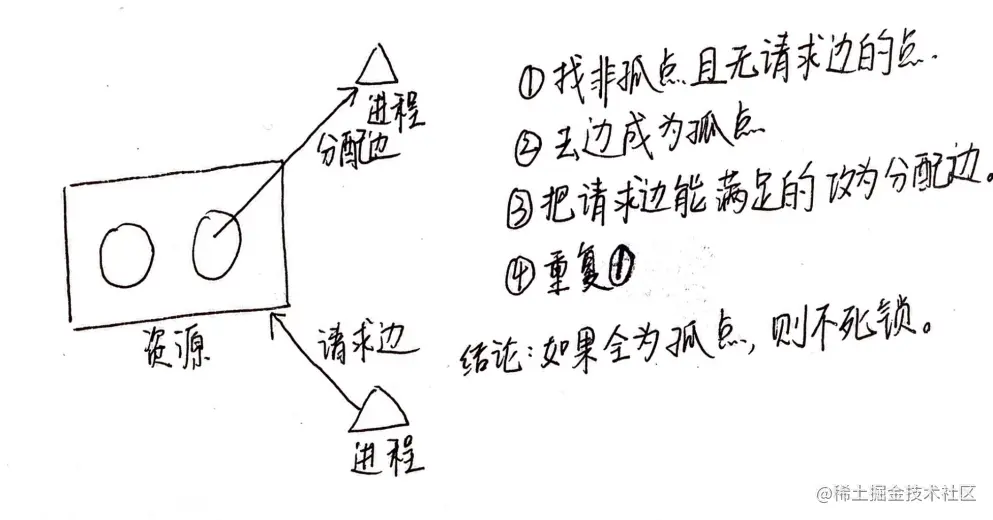 进程
分配边
资源
请求边
进程
①找非孤点且无请求边的点.
②去边成为孤点
③把请求边能满足的改为分配边。
④重复①
结论:如果全为孤点,则不死锁。
@稀土掘金技术社区